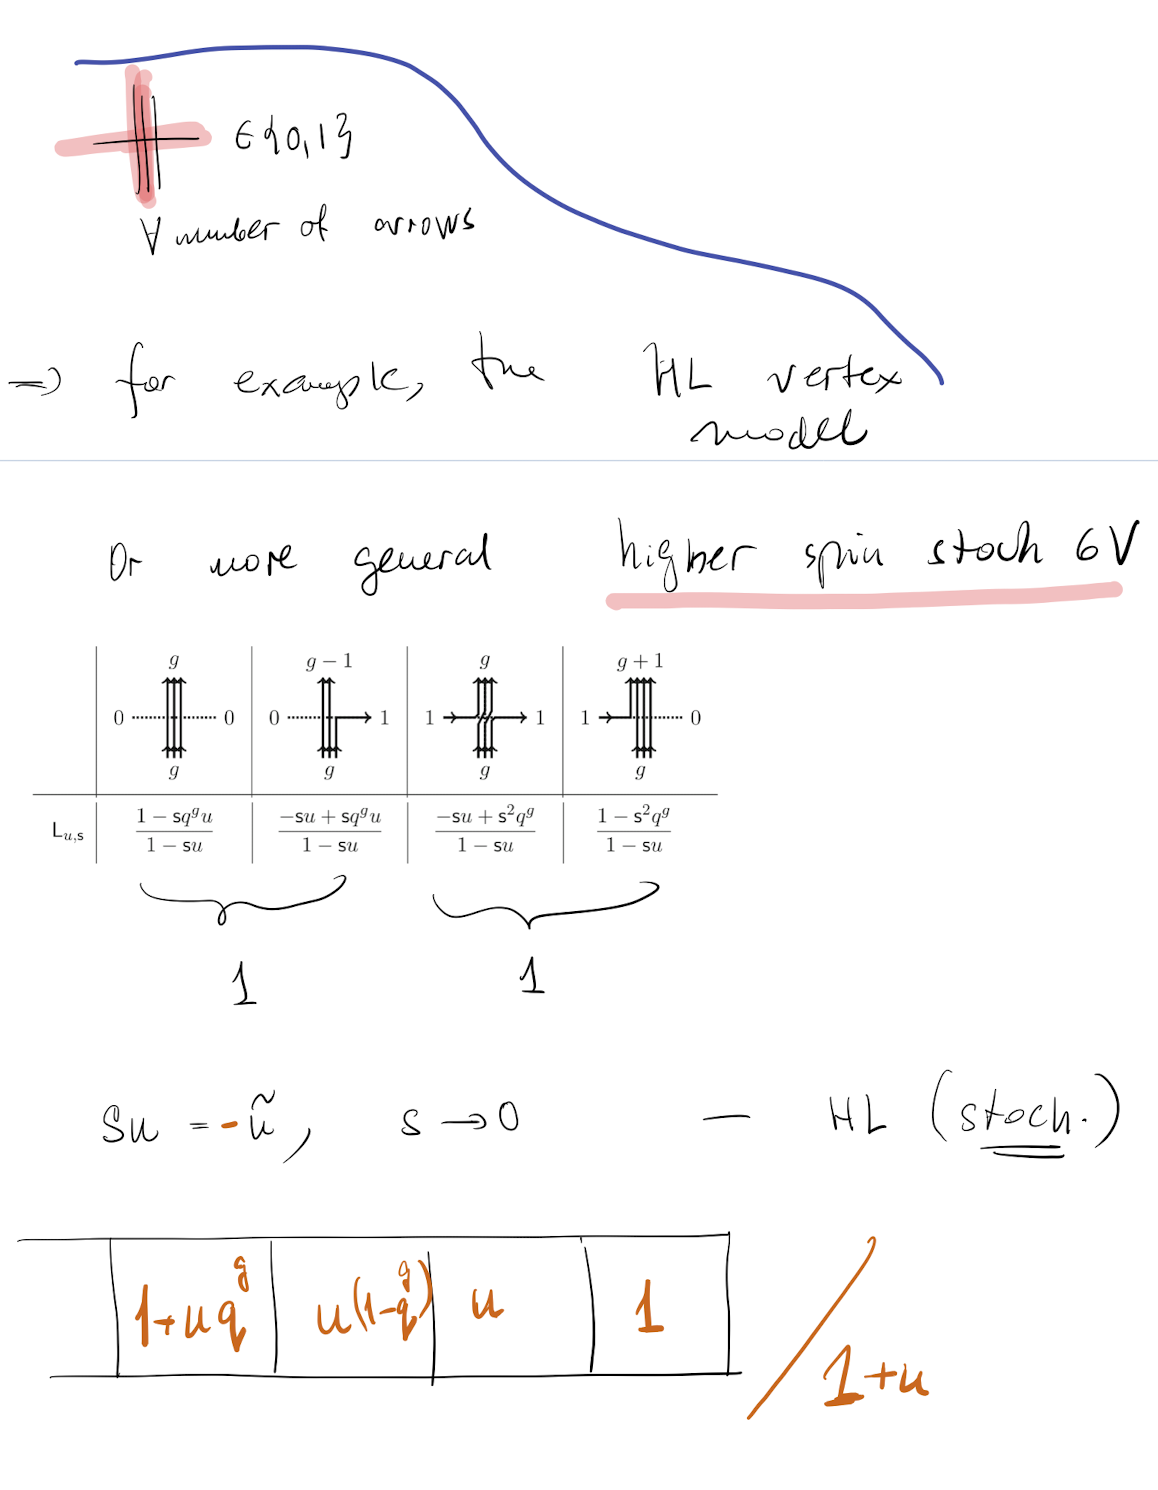 ∈{0,1}
∀ number of arrows
⇒ for example, the HL vertex
model
Or more general higher spin stoch 6V
g g − 1 g g + 1
0 0 0 1 1 1 1 0
g g g g
L_{u,s} \frac{1 − sq^g u}{1 − su} \frac{−su + sq^g u}{1 − su} \frac{−su + s^2q^g}{1 − su} \frac{1 − s^2q^g}{1 − su}
1 1
su = -ũ, s → 0 — HL (stoch.)
1+uq^g u(1-q^g) u 1 / 1+u